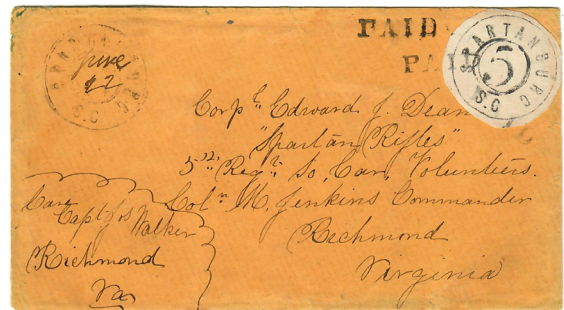 SPARTANBURG
S.C
June
22
PAID
PAID
SPARTANBURG
5
S.C
Corpl Edward J. Dean
"Spartan Rifles"
5th Regt So. Car. Volunteers.
Col M. Jenkins Commander
Rechmond
Virginia
Care
Capt Jos Walker
Richmond
Va